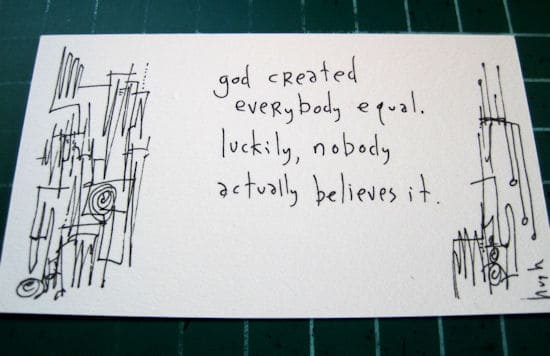 god created
everybody equal.
luckily, nobody
actually believes it.
hugh